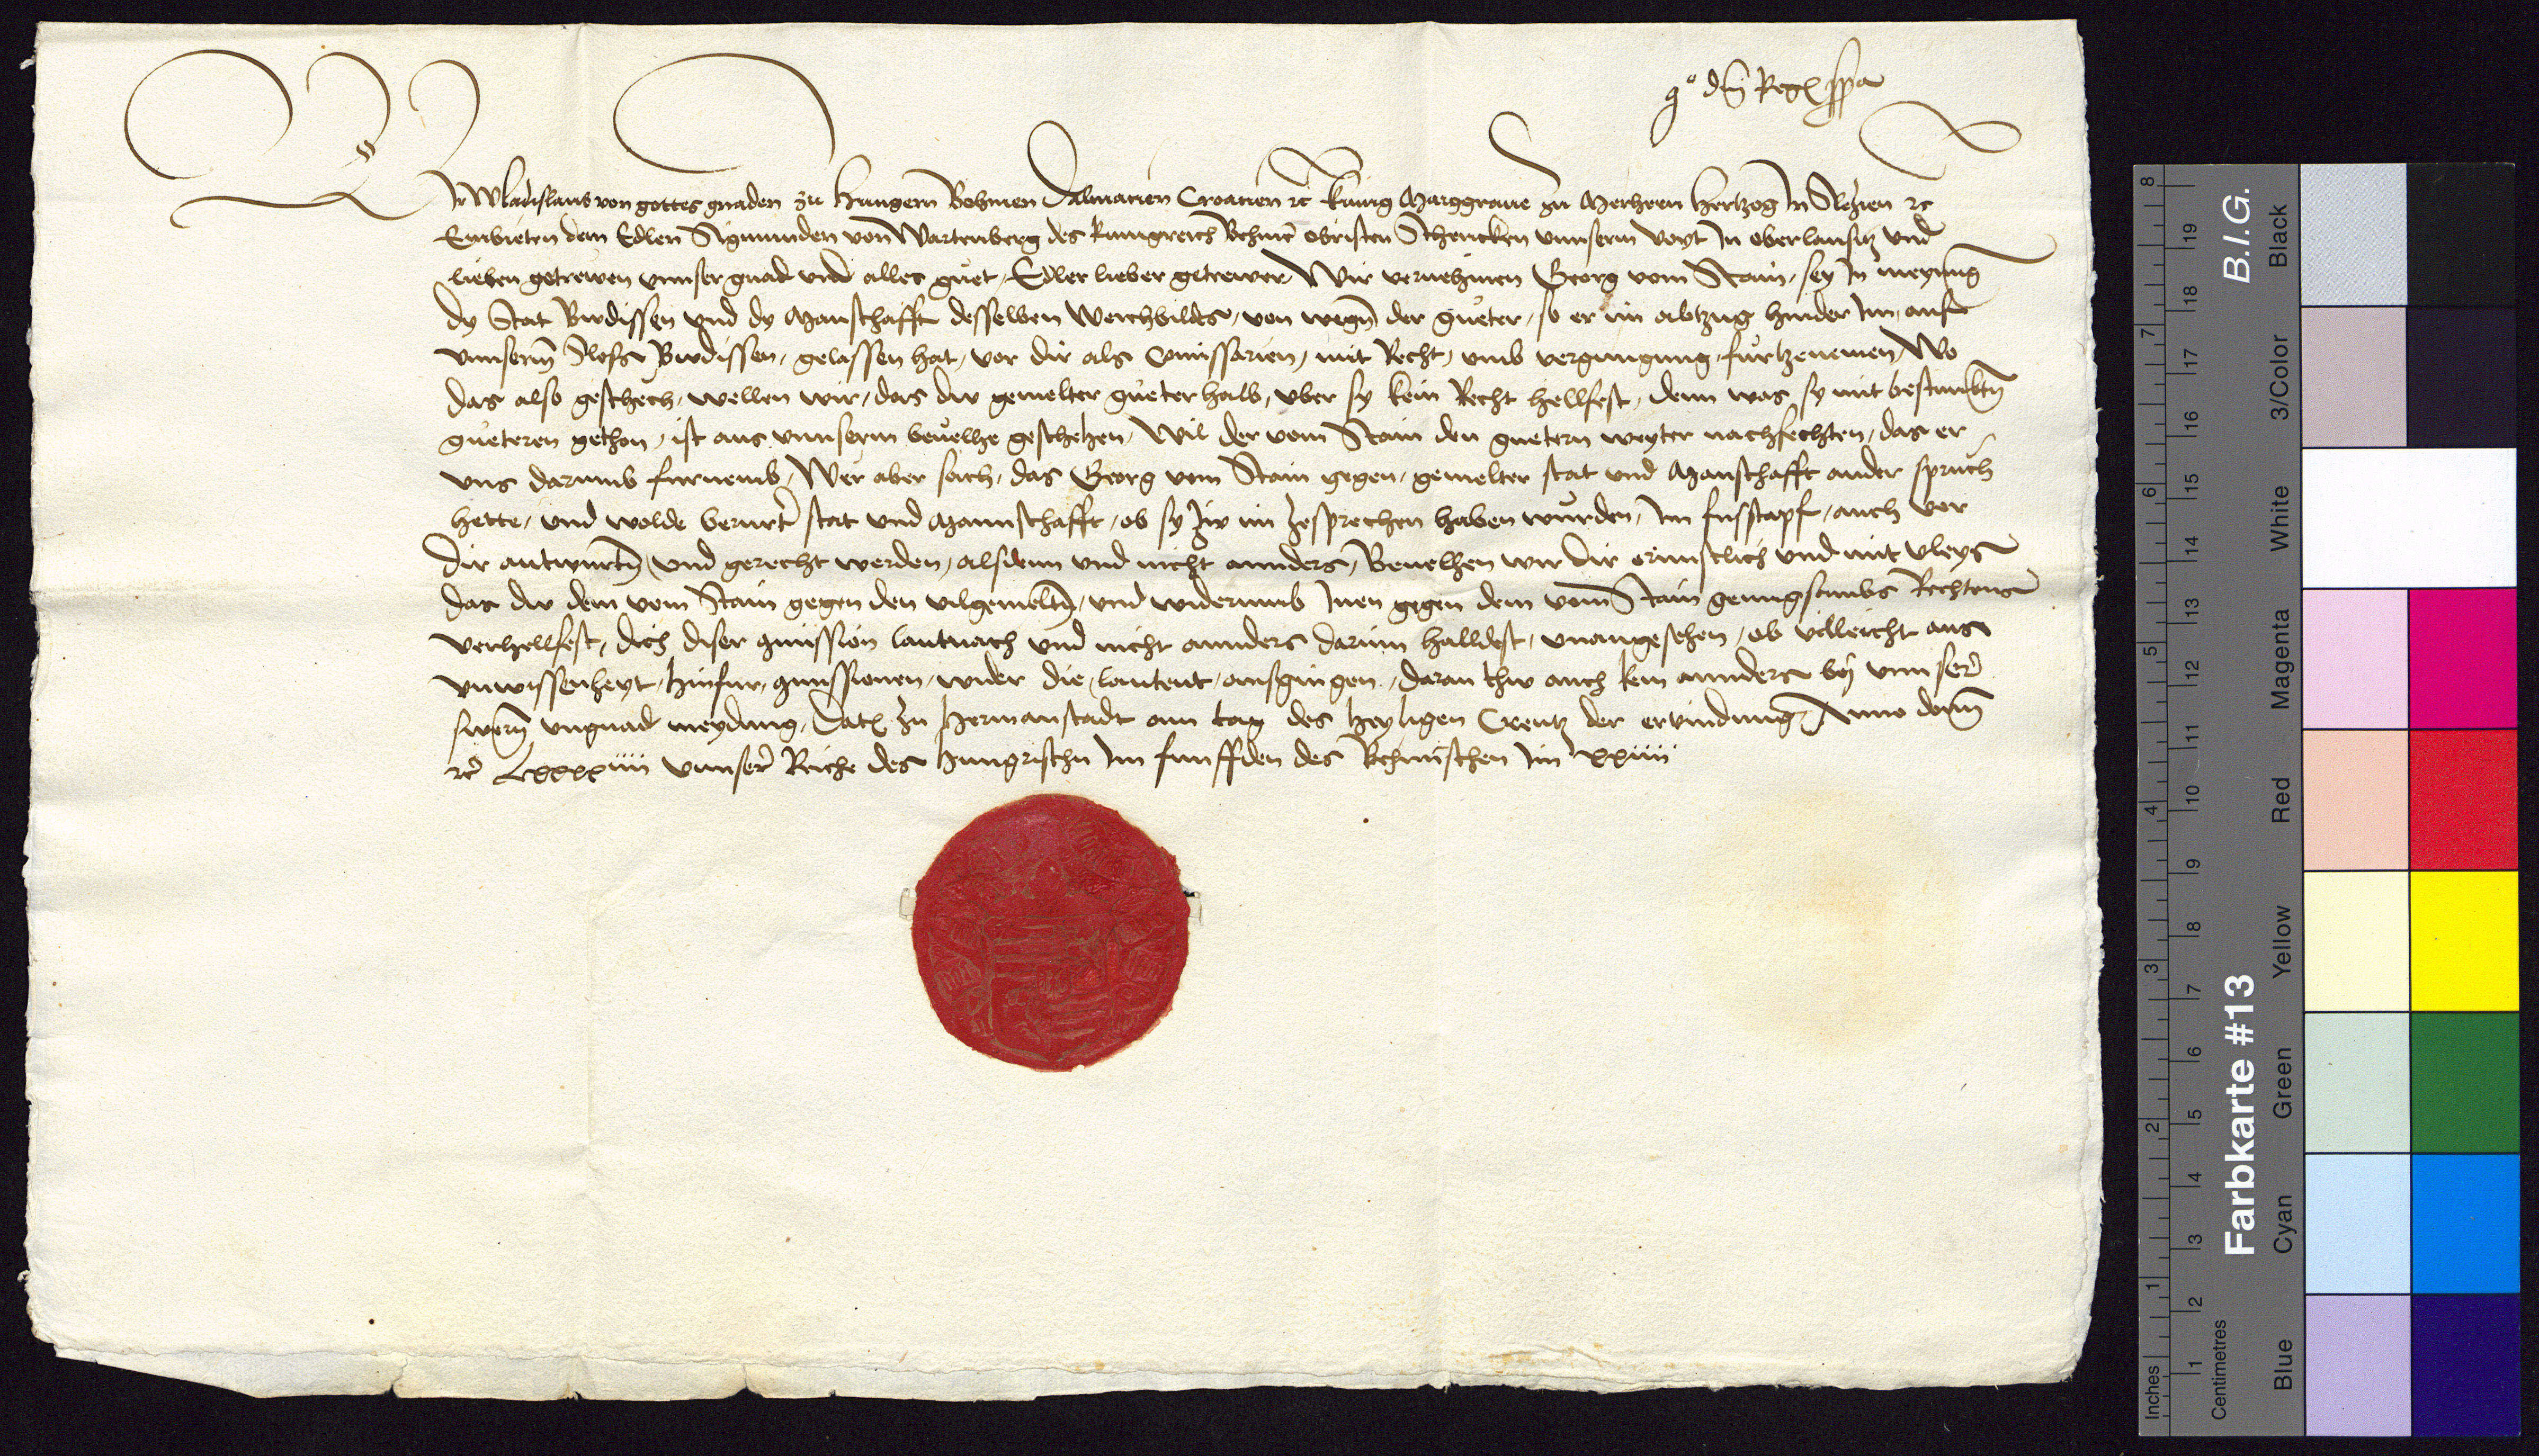 Co dni Reg ppa
WIr Wladislaus von gottes gnaden zu Hungern Behmen Dalmacien Croacien ꝛc kunig Marggraue zu Merhern hertzog In Slezien ꝛc
Embieten dem Edlen Sigmunden von Wartenberg des kungreich Behmē obristen Schencken vnnserm voyt In oberlausitz vnd
lieben getrewen vnnser gnad vnd alles guet, Edler lieber getrewer, Wir vernehmen Georg vom Stain, sey In meynūg
dy Stat Budissen vnd dy Manschafft desselben Weichbildes, von wegn̄ der gueter, so er im abtzug hinder Im, auff
vnnserm̄ Sloss Budissen, gelassen hat, vor dir als Comissarien, mit Recht, vmb vergnugung, furtzenemen, Wo
das also geschech, wellen wir, das du gemelter gueter halb, vber sy kein Recht hellfest, denn was sy mit bestimbtn̄
gueteren gethon, ist aus vnnserm beuelhe geschehen, Wil der vom Stain den guetern weyter nachfechten, das er
vns darumb furnemb, Wer aber sach, das Georg vom Stain gegen, gemelter stat vnd Manschafft ander spruch
hette, vnd wolde berurtr̄ stat vnd Mannschafft, ob sy zu im zesprechen haben wurden, Im fusstapf, auch vor
dir antwurtn̄, vnd gerecht werden, alsdenn vnd nicht annders, Beuelhen wir dir ernnstlich vnd mit vleys
das du dem vom Stain gegen den vilgemeltn̄, vnd widerumb Inen gegen dem vom Stain genugsambs Rechtens
verhellfest, dich diser Comission lautnach vnd nicht annders darinn halldest, vnangesehen, ob villeicht aus
vnwissenheyt, hinfur, Comissionen, wider die, lautent, ausgingen, daran thu auch kein annders bey vnnserr̄
swern̄ vngnad meydung, Dat zu Hermanstadt am tag des heyligen Creutz der erfindung, Anno domī
ꝛc Lxxxxiiii vnnserr̄ Reiche des Hungrischn Im funfften des Behmischen Im xxiiii
Inches
Centimetres
1
2
3
4
5
6
7
8
1
2
3
4
5
6
7
8
9
10
11
12
13
14
15
16
17
18
19
Farbkarte #13
B.I.G.
Blue
Cyan
Green
Yellow
Red
Magenta
White
3/Color
Black